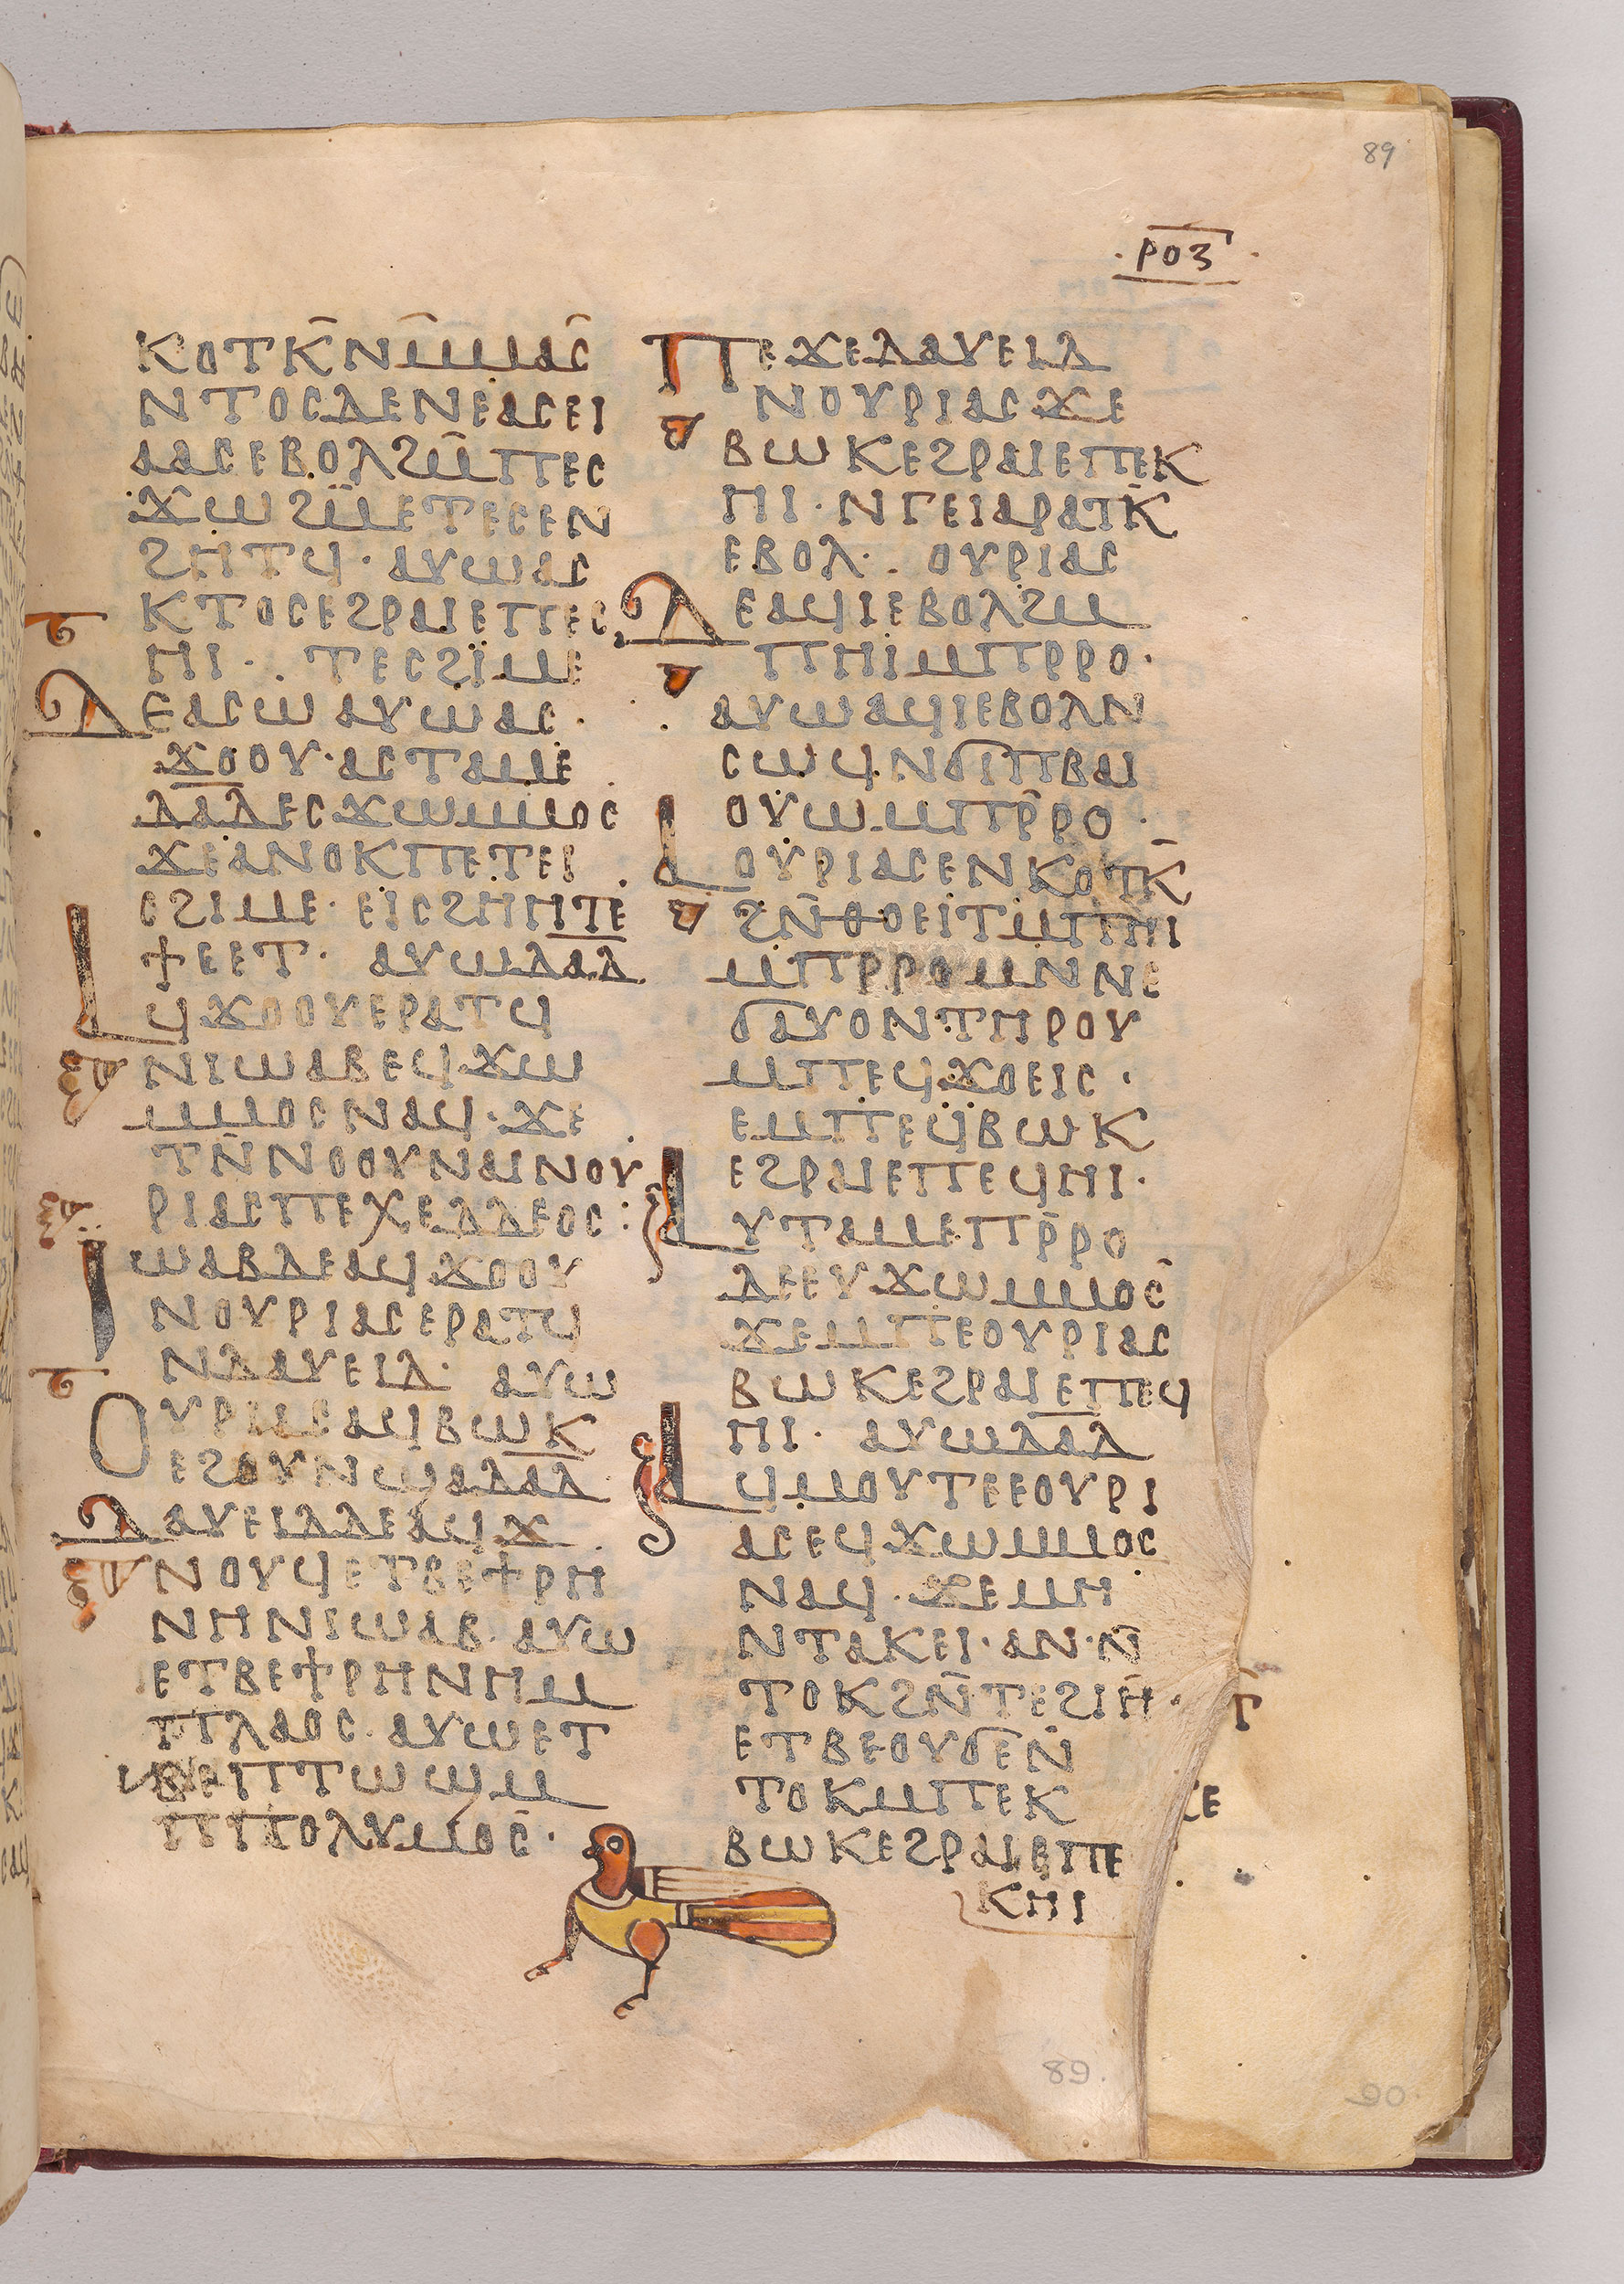 89
· ⲣⲟⲍ ·
ⲕⲟⲧⲕ̄ⲛⲙ̄ⲙⲁⲥ̄
ⲛⲧⲟⲥⲇⲉⲛⲉⲁⲥⲉⲓ
ⲁⲁⲥⲉⲃⲟⲗϩⲙ̄ⲡⲉⲥ
ϫⲱϩⲙ̄ⲉⲧⲉⲥⲉⲛ
ϩⲏⲧϥ· ⲁⲩⲱⲁⲥ
ⲕⲧⲟⲥⲉϩⲣⲁⲓⲉⲡⲉⲥ
ⲏⲓ· ⲧⲉⲥϩⲓ̈ⲙⲉ
ⲇⲉⲁⲥⲱ ⲁⲩⲱⲁⲥ·
ϫⲟⲟⲩ· ⲁⲥⲧⲁⲙⲉ
ⲇⲁ̄ⲇⲉⲥϫⲱⲙⲙⲟⲥ
ϫⲉⲁⲛⲟⲕⲡⲉⲧⲉⲓ
ⲥϩⲓⲙⲉ· ⲉⲓⲥϩⲏⲏⲧⲉ
ϯⲉⲉⲧ· ⲁⲩⲱⲇⲁⲇ
ⲁϥϫⲟⲟⲩⲉⲣⲁⲧϥ
ⲛⲓⲱⲁⲃⲉϥϫⲱ
ⲙⲙⲟⲥⲛⲁϥ· ϫⲉ
ⲧⲛ̄ⲛⲟⲟⲩⲛⲁⲓⲛⲟⲩ
ⲣⲓⲁⲥⲡⲉⲭⲉⲇⲇⲉⲟⲥ:
ⲓⲱⲁⲃⲇⲉⲁϥϫⲟⲟⲩ
ⲛⲟⲩⲣⲓⲁⲥⲉⲣⲁⲧϥ
ⲛⲇⲁⲩⲉⲓⲇ· ⲁⲩⲱ
ⲟⲩⲣⲓⲁⲥⲁϥⲃⲱⲕ
ⲉϩⲟⲩⲛϣⲁⲇⲁ̄ⲇ
ⲇⲁⲩⲉⲓⲇⲇⲉⲁϥϫ
ⲛⲟⲩϥⲉⲧⲃⲉϯⲣⲏ
ⲛⲏⲛⲓⲱⲁⲃ· ⲁⲩⲱ
ⲉⲧⲃⲉϯⲣⲏⲛⲏⲙ
ⲡⲗⲁⲟⲥ· ⲁⲩⲱⲉⲧ
ⲃⲉⲡⲧⲱϣⲙ
ⲡⲡⲟⲗⲩⲙⲟⲥ̄·
ⲡⲉϫⲉⲇⲁⲩⲉⲓⲇ
ⲛⲟⲩⲣⲓⲁⲥ ϫⲉ
ⲃⲱⲕⲉϩⲣⲁⲓⲉⲡⲉⲕ
ⲏⲓ· ⲛⲅⲉⲓⲁⲣⲁⲧⲕ̄
ⲉⲃⲟⲗ· ⲟⲩⲣⲓⲁⲥ
ⲇⲉⲁϥⲓⲉⲃⲟⲗϩⲙ
ⲡⲏⲓⲙⲡⲣⲣⲟ·
ⲁⲩⲱⲁϥⲓⲉⲃⲟⲗⲛ
ⲥⲱϥⲛϭⲓⲡⲃⲁⲓ
ⲟⲩⲱⲙⲡⲣ̄ⲣⲟ·
ⲁⲟⲩⲣⲓⲁⲥⲉⲛⲕⲟⲧⲕ̄
ϩⲛ̄ⲑⲟⲉⲓⲧⲙⲡⲏⲓ
ⲙⲡⲣⲣⲟⲙⲛⲛⲉ
ϭⲁⲩⲟⲛⲧⲏⲣⲟⲩ
ⲙⲡⲉϥϫⲟⲉⲓⲥ·
ⲉⲙⲡⲉϥⲃⲱⲕ
ⲉϩⲣⲁⲓⲉⲡⲉϥⲏⲓ·
ⲁⲩⲧⲁⲙⲉⲡⲣ̄ⲣⲟ
ⲇⲉⲉⲩϫⲱⲙⲙⲟⲥ̄
ϫⲉⲙⲡⲉⲟⲩⲣⲓⲁⲥ
ⲃⲱⲕⲉϩⲣⲁⲓⲉⲡⲉϥ
ⲏⲓ· ⲁⲩⲱⲇⲁ̄ⲇ
ⲁϥⲙⲟⲩⲧⲉⲉⲟⲩⲣⲓ
ⲁⲥⲉϥϫⲱⲙⲙⲟⲥ
ⲛⲁϥ· ϫⲉⲙⲏ
ⲛⲧⲁⲕⲉⲓ· ⲁⲛ· ⲛ̄
ⲧⲟⲕϩⲛ̄ⲧⲉϩⲓⲏ̄·
ⲉⲧⲃⲉⲟⲩϭⲉⲛ̄
ⲧⲟⲕⲙⲡⲉⲕ
ⲃⲱⲕⲉϩⲣⲁⲓⲉⲡⲉ
ⲕⲏⲓ
89.
90.